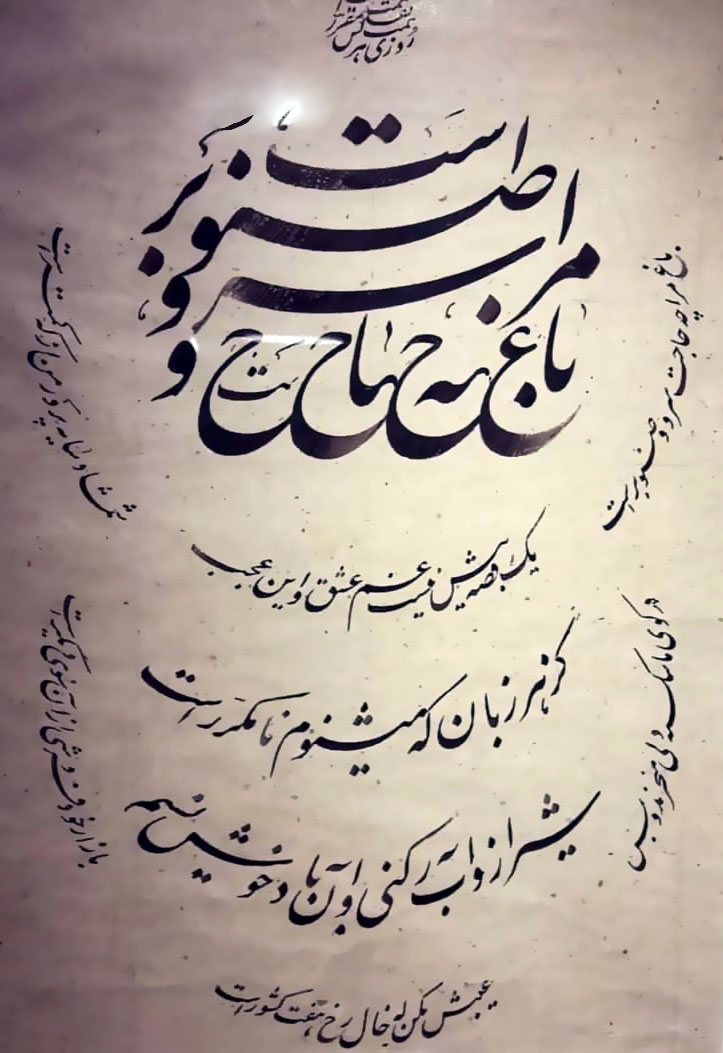 روزی هر کس
باغ مرا چه حاجت سرو و صنوبر است
باغ مرا چه حاجت سرو و صنوبر است
شمشاد سایه پرور من از که کمتر است
یک قصه بیش نیست غم عشق و این عجب
کز هر زبان که میشنوم نامکرر است
در کوی ما شکسته دلی میخرند و بس
بازار خودفروشی از آن سوی دیگر است
شیراز و آب رکنی و آن باد خوش نسیم
عیبش مکن که خال رخ هفت کشور است